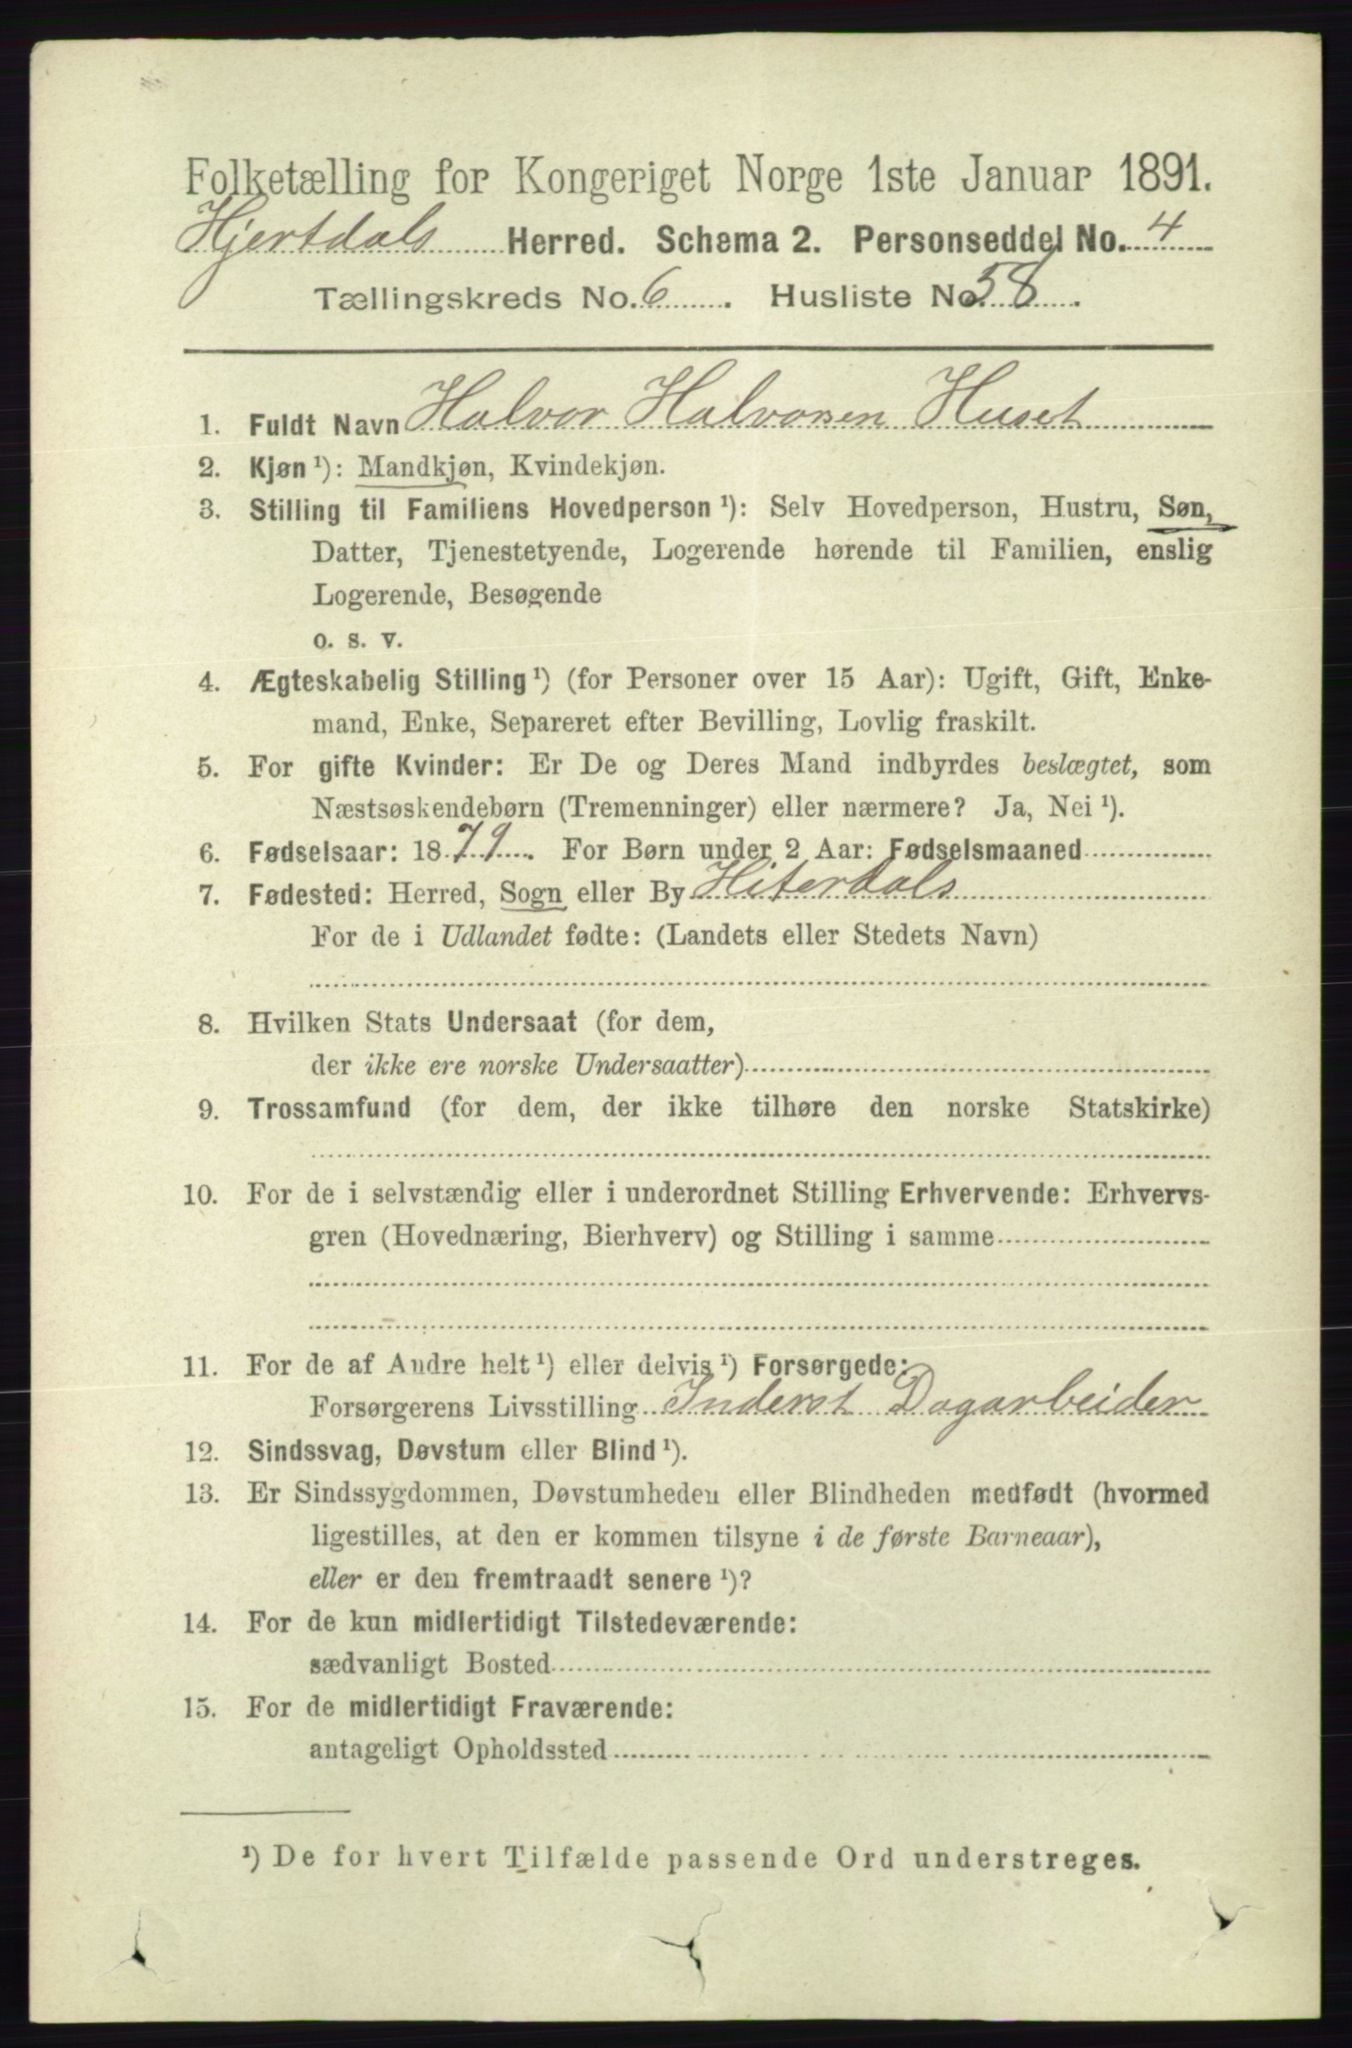 Folketælling for Kongeriget Norge 1ste Januar 1891.
Hjertdals Herred. Schema 2. Personseddel No. 4
Tællingskreds No. 6. Husliste No. 58.
1. Fuldt Navn Halvor Halvorsen Huset
2. Kjøn ¹): Mandkjøn, Kvindekjøn.
3. Stilling til Familiens Hovedperson ¹): Selv Hovedperson, Hustru, Søn,
Datter, Tjenestetyende, Logerende hørende til Familien, enslig
Logerende, Besøgende
o. s. v.
4. Ægteskabelig Stilling ¹) (for Personer over 15 Aar): Ugift, Gift, Enke-
mand, Enke, Separeret efter Bevilling, Lovlig fraskilt.
5. For gifte Kvinder: Er De og Deres Mand indbyrdes beslægtet, som
Næstsøskendebørn (Tremenninger) eller nærmere? Ja, Nei ¹).
6. Fødselsaar: 1879. For Børn under 2 Aar: Fødselsmaaned
7. Fødested: Herred, Sogn eller By Hiterdals
For de i Udlandet fødte: (Landets eller Stedets Navn)
8. Hvilken Stats Undersaat (for dem,
der ikke ere norske Undersaatter)
9. Trossamfund (for dem, der ikke tilhøre den norske Statskirke)
10. For de i selvstændig eller i underordnet Stilling Erhvervende: Erhvervs-
gren (Hovednæring, Bierhverv) og Stilling i samme
11. For de af Andre helt ¹) eller delvis ¹) Forsørgede:
Forsørgerens Livsstilling Inderst Dagarbeider
12. Sindssvag, Døvstum eller Blind ¹).
13. Er Sindssygdommen, Døvstumheden eller Blindheden medfødt (hvormed
ligestilles, at den er kommen tilsyne i de første Barneaar),
eller er den fremtraadt senere ¹)?
14. For de kun midlertidigt Tilstedeværende:
sædvanligt Bosted
15. For de midlertidigt Fraværende:
antageligt Opholdssted
¹) De for hvert Tilfælde passende Ord understreges.